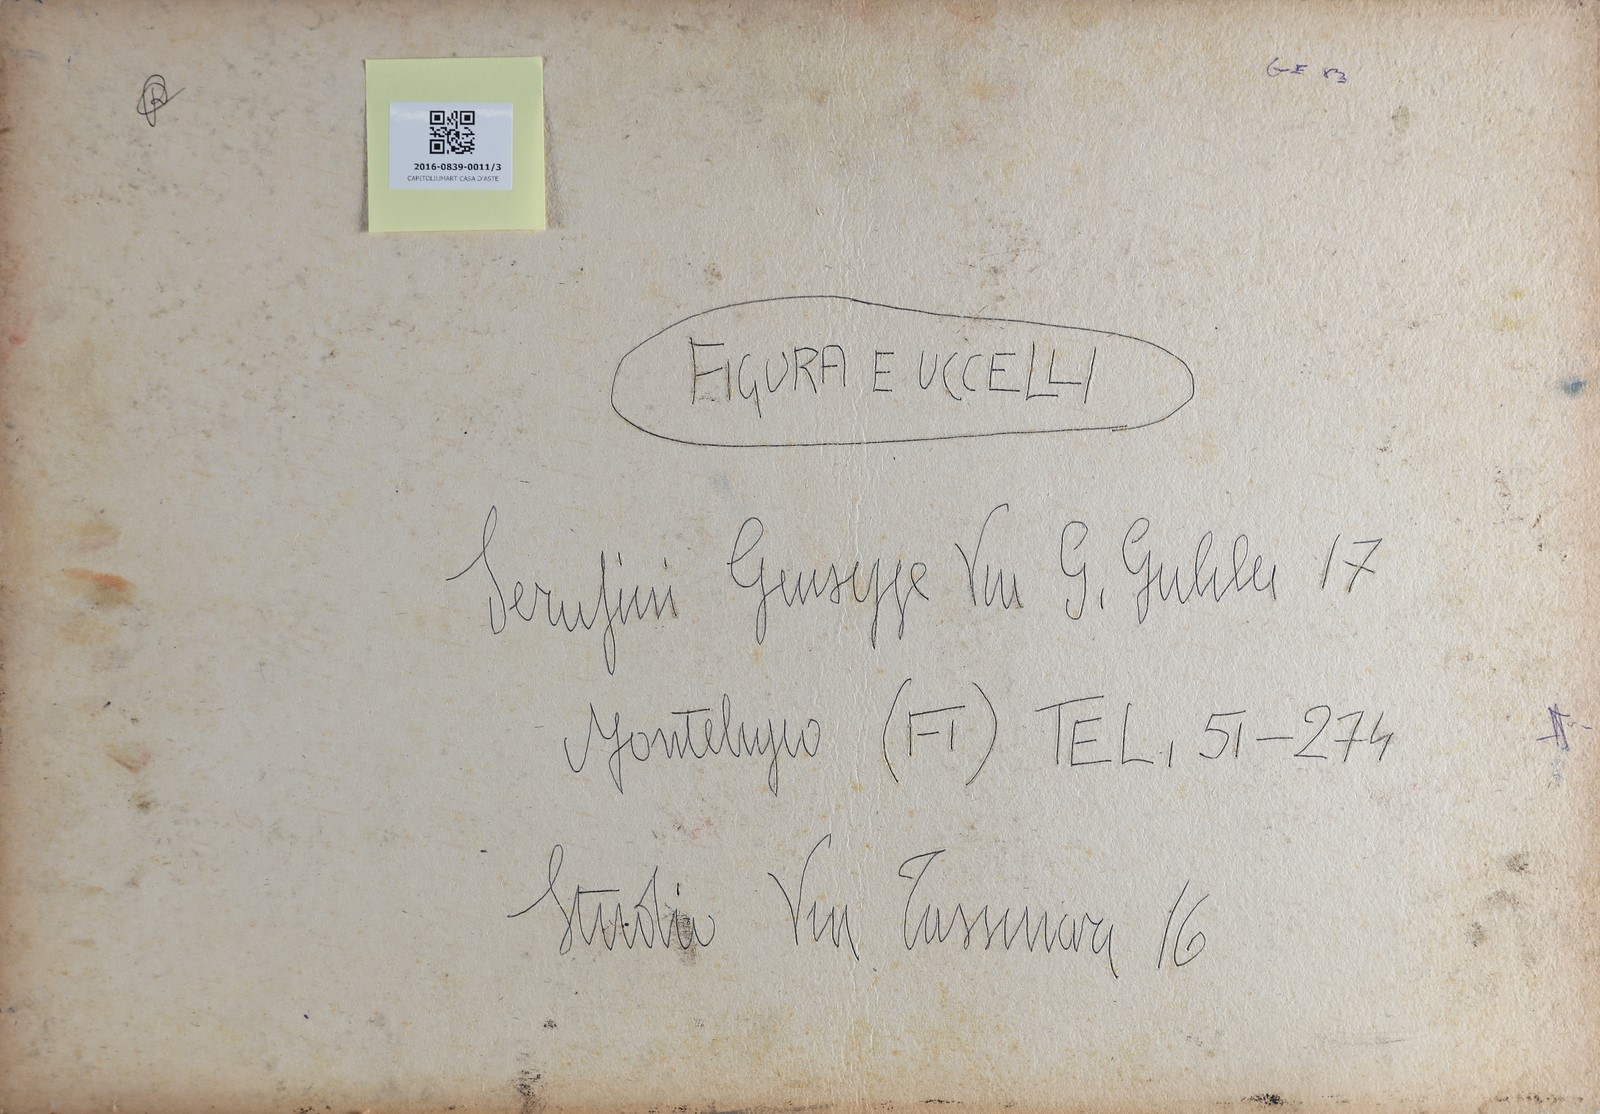 GE 83
2016-0839-0011/3
CAPITOLIUMART CASA D'ASTE
FIGURA E UCCELLI
Serafini Giuseppe Via G. Galilei 17
Montelupo (FI) TEL. 51-274
Studio Via Tassinari 16